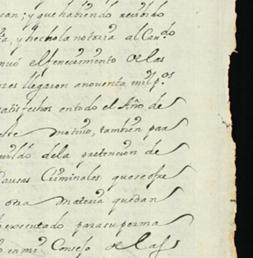 san; y que habiendo recibido
ta, y hechola notaria al Cavdo
nuó el fenecimiento de las
res llegaron a noventa mil ps
satisfechos en todo el Año de
motivo, tambien par
de la pretencion de
Causas Criminales que se ofre
otra Materia quedan
executado para su perma
en mi Consejo de las